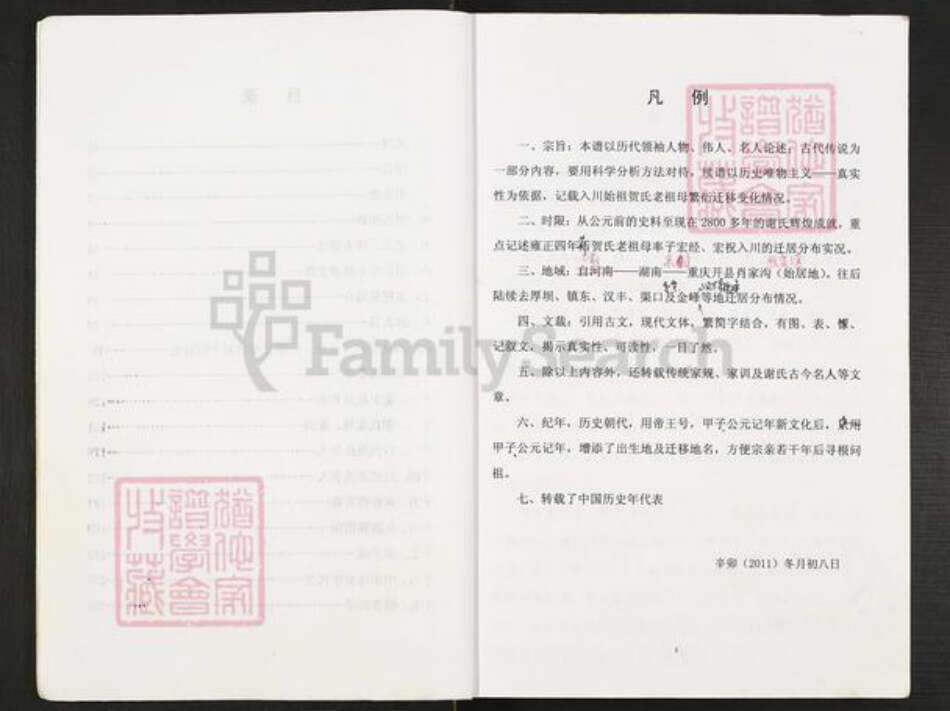 凡 例
一、宗旨：本谱以历代领袖人物、伟人、名人论述；古代传说为
一部分内容，要用科学分析方法对待，续谱以历史唯物主义——真实
性为依据，记载入川始祖贺氏老祖母繁衍迁移变化情况。
二、时限：从公元前的史料至现在2800多年的谢氏辉煌成就，重
点记述雍正四年 贺氏老祖母率子宏经、宏祝入川的迁居分布实况。
三、地域：自河南——湖南——重庆开县肖家沟（始居地）。往后
陆续去厚坝、镇东、汉丰、渠口及金峰等地迁居分布情况。
四、文裁：引用古文，现代文体，繁简字结合，有图、表、
记叙文，揭示真实性，可读性，一目了然。
五、除以上内容外，还转载传统家规、家训及谢氏古今名人等文
章。
六、纪年，历史朝代，用帝王号，甲子公元记年新文化后，
甲子公元记年，增添了出生地及迁移地名，方便宗亲若干年后寻根问
祖。
七、转载了中国历史年代表
辛卯（2011）冬月初八日
FamilySearch